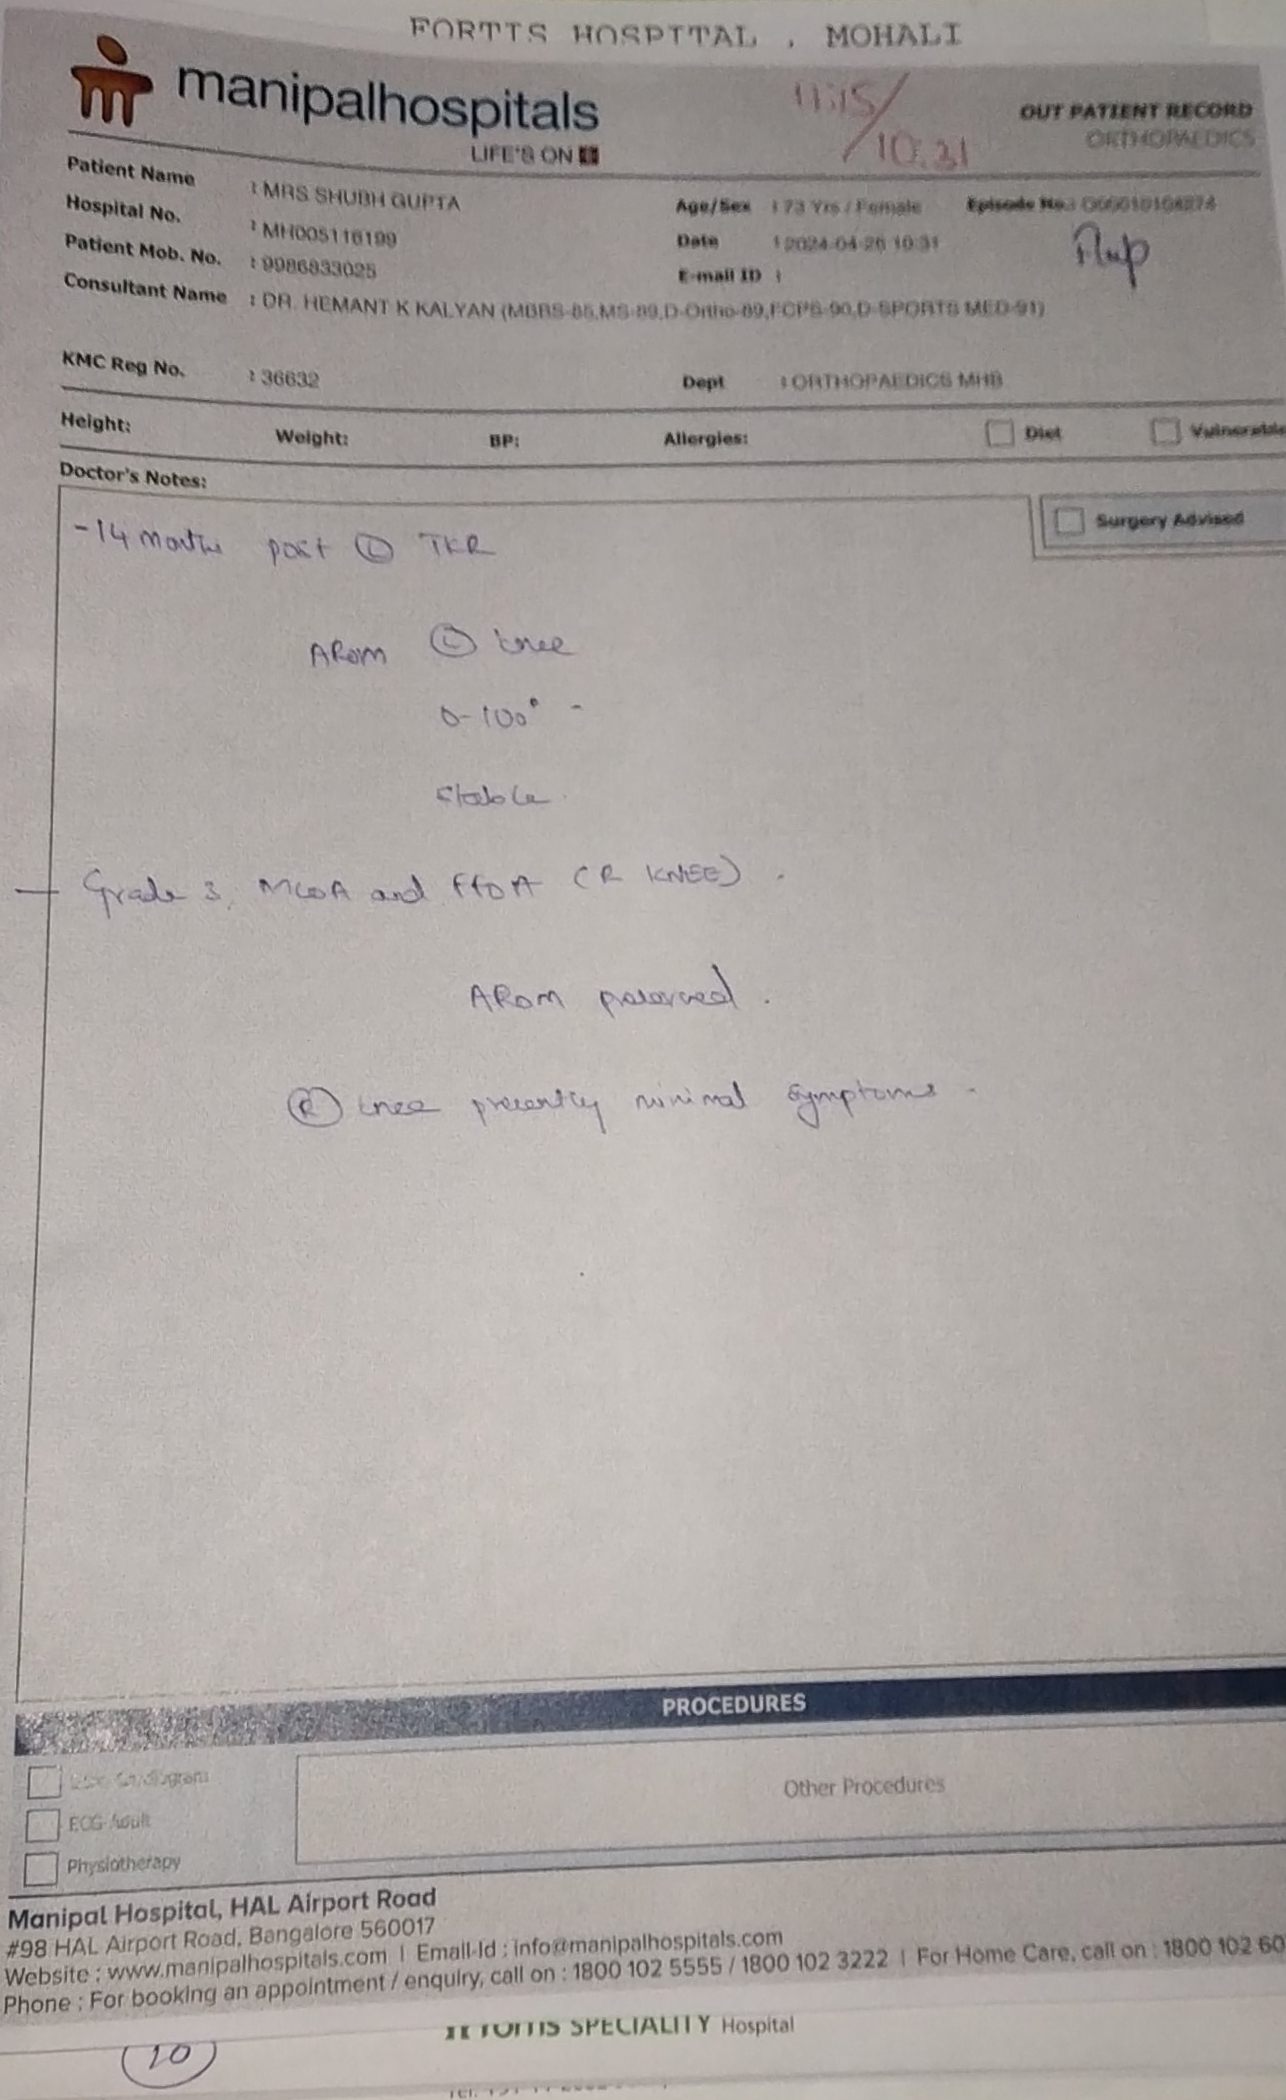 FORTIS HOSPITAL , MOHALI
manipalhospitals
LIFE'S ON
11:15/
10.31
OUT PATIENT RECORD
ORTHOPAEDICS
Patient Name : MRS SHUBH GUPTA
Age/Sex : 73 Yrs / Female
Episode No.:
Hospital No. : MH005116199
Date : 2024-04-26 10:31
Patient Mob. No. : 9986833025
E-mail ID :
Consultant Name : DR. HEMANT K KALYAN (MBBS-85,MS-89,D-Ortho-89,FCPS-90,D-SPORTS MED-91)
KMC Reg No. : 36632
Dept : ORTHOPAEDICS MHB
Height: Weight: BP: Allergies: Diet Vulnerable
Doctor's Notes:
Surgery Advised
- 14 months post (L) TKR
AROM (L) knee
0-100° -
stable
Grade 3 MCOA and PFOA (R KNEE) .
AROM preserved .
(R) knee presently minimal symptoms .
PROCEDURES
ECG-Adult
Physiotherapy
Other Procedures
Manipal Hospital, HAL Airport Road
#98 HAL Airport Road, Bangalore 560017
Website : www.manipalhospitals.com | Email-Id : info@manipalhospitals.com
Phone : For booking an appointment / enquiry, call on : 1800 102 5555 / 1800 102 3222 | For Home Care, call on : 1800 102 60
FORTIS SPECIALITY Hospital
20